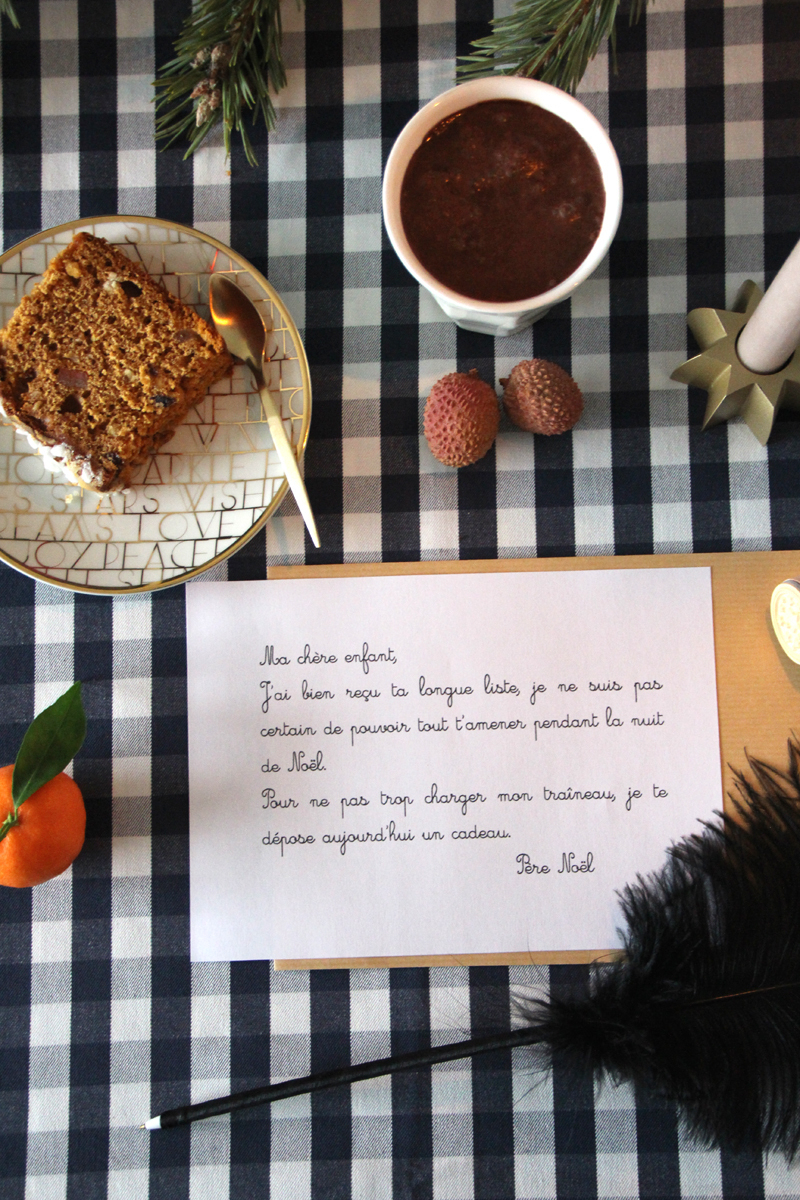 WISH
LOVE
JOY PEACE
Ma chère enfant,
J'ai bien reçu ta longue liste, je ne suis pas
certain de pouvoir tout t'amener pendant la nuit
de Noël.
Pour ne pas trop charger mon traîneau, je te
dépose aujourd'hui un cadeau.
Père Noël